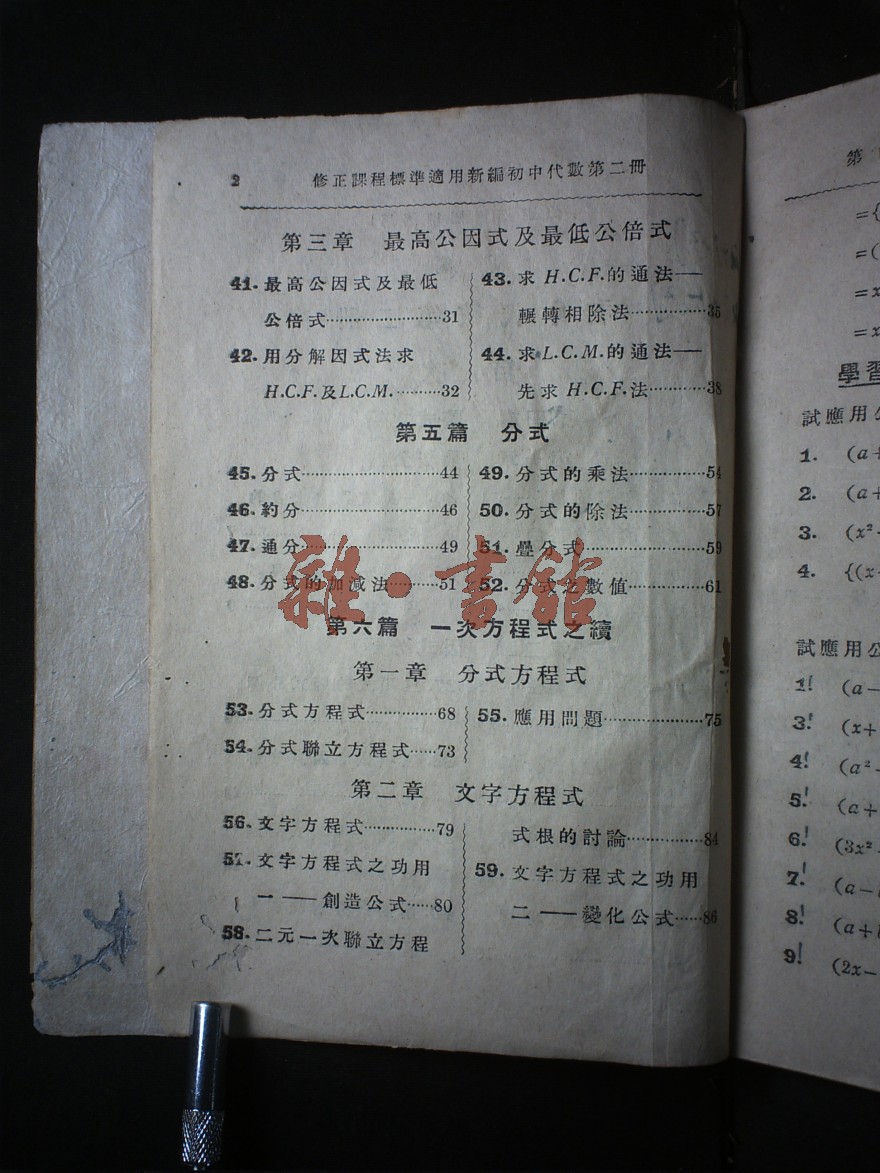 2 修正課程標準適用新編初中代數第二冊
第三章 最高公因式及最低公倍式
41.最高公因式及最低
公倍式……………………31
42.用分解因式法求
H.C.F.及L.C.M.………32
43.求H.C.F.的通法——
輾轉相除法……………35
44.求L.C.M.的通法——
先求H.C.F.法…………38
第五篇 分式
45.分式………………………44
46.約分………………………46
47.通分………………………49
48.分式的加減法………51
49.分式的乘法……………54
50.分式的除法……………57
51.疊分式…………………59
52.分式之數值……………61
第六篇 一次方程式之續
第一章 分式方程式
53.分式方程式……………68
54.分式聯立方程式……73
55.應用問題………………75
第二章 文字方程式
56.文字方程式……………79
57.文字方程式之功用
一——創造公式……80
58.二元一次聯立方程
式根的討論……………84
59.文字方程式之功用
二——變化公式……86
雜·書館
第
={
=(
=x
=x
學習
試應用公
1. (a+
2. (a+
3. (x²-
4. {(x-
試應用公
1! (a-
3! (x+
4! (a²-
5! (a+
6! (3x²-
7! (a-
8! (a+
9! (2x-